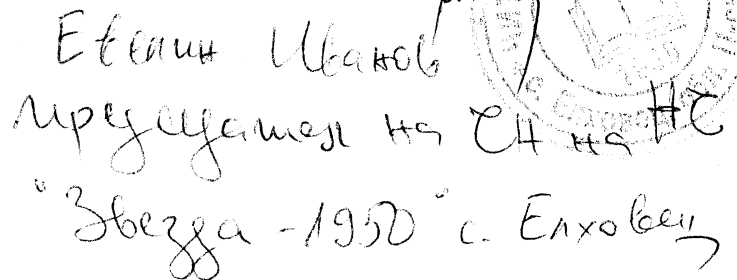 Евелин Иванов
председател на ЧН на НЧ
"Звезда - 1950" с. Елховец